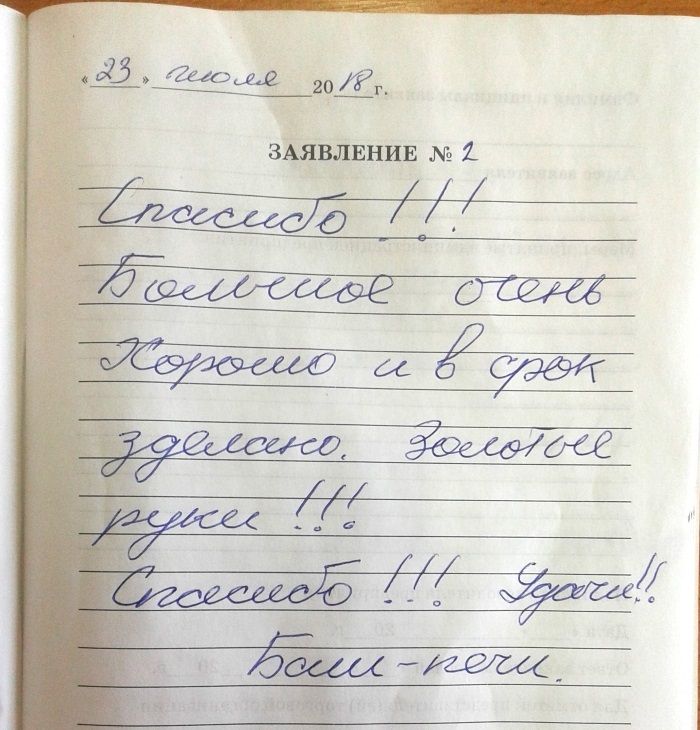 « 23 » июля 20 18 г.
ЗАЯВЛЕНИЕ № 2
Спасибо !!!
Большое очень
Хорошо и в срок
зделано. Золотые
руки !!!
Спасибо !!! Удачи!!
Бали-печи.